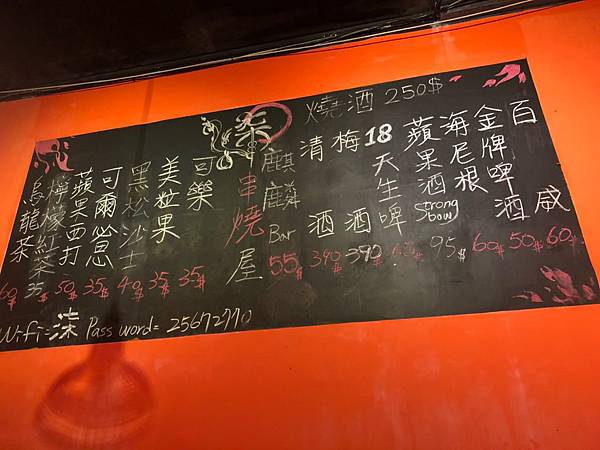 燒酒 250$
百威 60$
金牌啤酒 50$
海尼根 60$
蘋果酒 Strong bow 95$
18天生啤
梅酒 390
清酒 390$
麒麟 Bar 55$
柒串燒屋
可樂 35$
美粒果 35$
黑松沙士 40$
可爾必思 35$
蘋果西打 50$
檸檬紅茶 35$
烏龍茶 60$
Wifi=柒 Password= 25672770